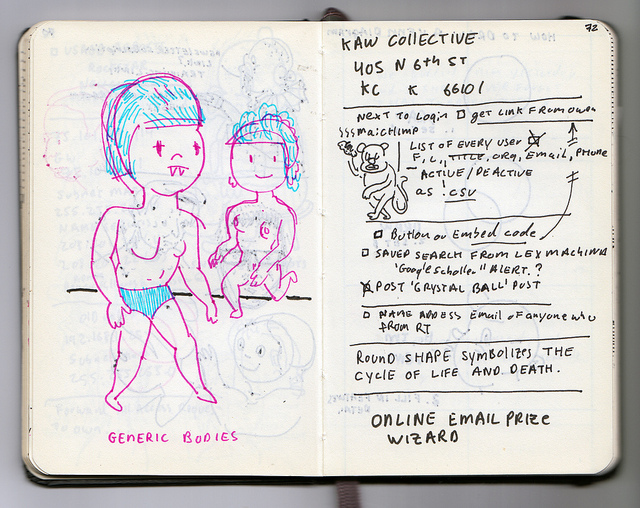 GENERIC BODIES
72
KAW COLLECTIVE
405 N 6th ST
KC K 66101
NEXT TO LOGIN □ get LINK FROM OWEN
sssmaichimp
LIST OF EVERY USER
F, L, TITLE, ORG, EMAIL, PHONE
ACTIVE / DEACTIVE
as .CSV
□ Button or Embed code
□ SAVED SEARCH FROM LEX MACHINA
"Google scholar" ALERT.?
POST 'CRYSTAL BALL' POST
□ NAME ADDRESS Email of anyone who
FROM RT
ROUND SHAPE SYMBOLIZES THE
CYCLE OF LIFE AND DEATH.
ONLINE EMAIL PRIZE
WIZARD